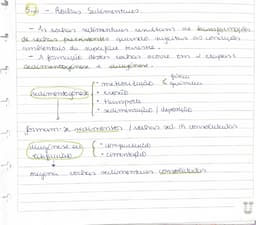 5.2 - Rochas Sedimentares
- As rochas sedimentares resultam da transformação
de rochas preexistentes quando sujeitas às condições
ambientais da superfície terrestre.
- A formação destas rochas ocorre em 2 etapas:
sedimentogénese e diagénese
física
• meteorização < química
sedimentogénese • erosão
• transporte
• sedimentação / deposição
formam-se sedimentos / rochas sed. não consolidadas
diagénese ou • compactação
• cimentação
origina rochas sedimentares consolidadas